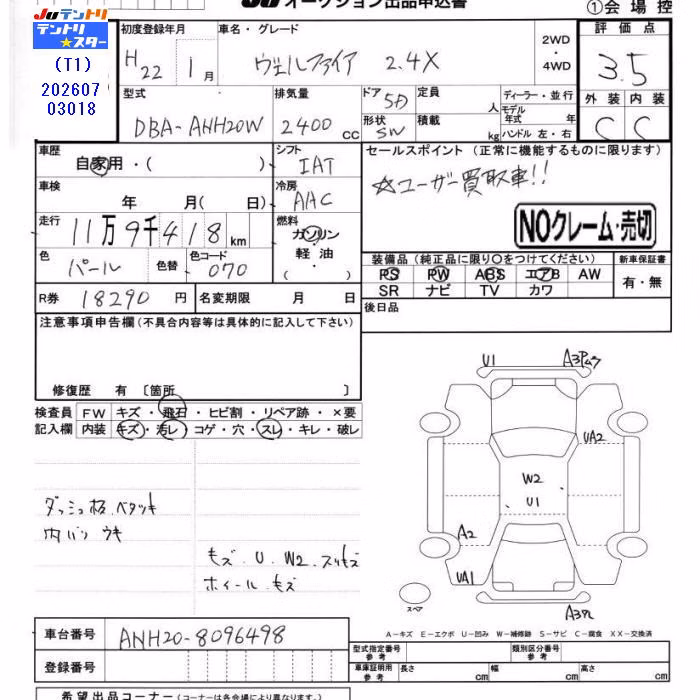 JU オークション出品申込書
①会場控
JUテントリ
テントリ★スター
(T1)
202607
03018
初度登録年月
H22 1月
車名・グレード
ヴェルファイア 2.4X
2WD
・
4WD
評価点
3.5
外装 内装
C C
型式
DBA-ANH20W
排気量
2400 cc
ドア 5D
形状 SW
定員 人
積載 kg
ディーラー・並行
モデル年式 年
ハンドル 左・右
車歴
自家用・( )
シフト
IAT
車検
年 月( 日)
冷房
AAC
走行
11万9千418km
燃料
ガソリン
軽油
( ・ )
色
パール
色替
色コード
070
R券 18290円
名変期限 月 日
セールスポイント (正常に機能するものに限ります)
☆ユーザー買取車!!
NOクレーム・売切
装備品(純正品に限り○をつけてください)
新車保証書
PS PW ABS エアB AW
SR ナビ TV カワ
有・無
後日品
注意事項申告欄(不具合内容等は具体的に記入して下さい)
修復歴 有 〔箇所 〕
検査員記入欄
FW キズ・飛石・ヒビ割・リペア跡・×要
内装 キズ・汚レ・コゲ・穴・スレ・キレ・破レ
ダッシュ板 ベタツキ
内バリ ウキ
キズ.U.W2.スリキズ
ホイール キズ
U1
UA2
W2
U1
A2
UA1
スペア
A-キズ E-エクボ U-凹み W-補修跡 S-サビ C-腐食 XX-交換済
車台番号 ANH20-8096498
登録番号
型式指定番号 参考
類別区分番号 参考
車庫証明用 参考
長さ cm
幅 cm
高さ cm
希望出品コーナー(コーナーは各会場により異なります。)